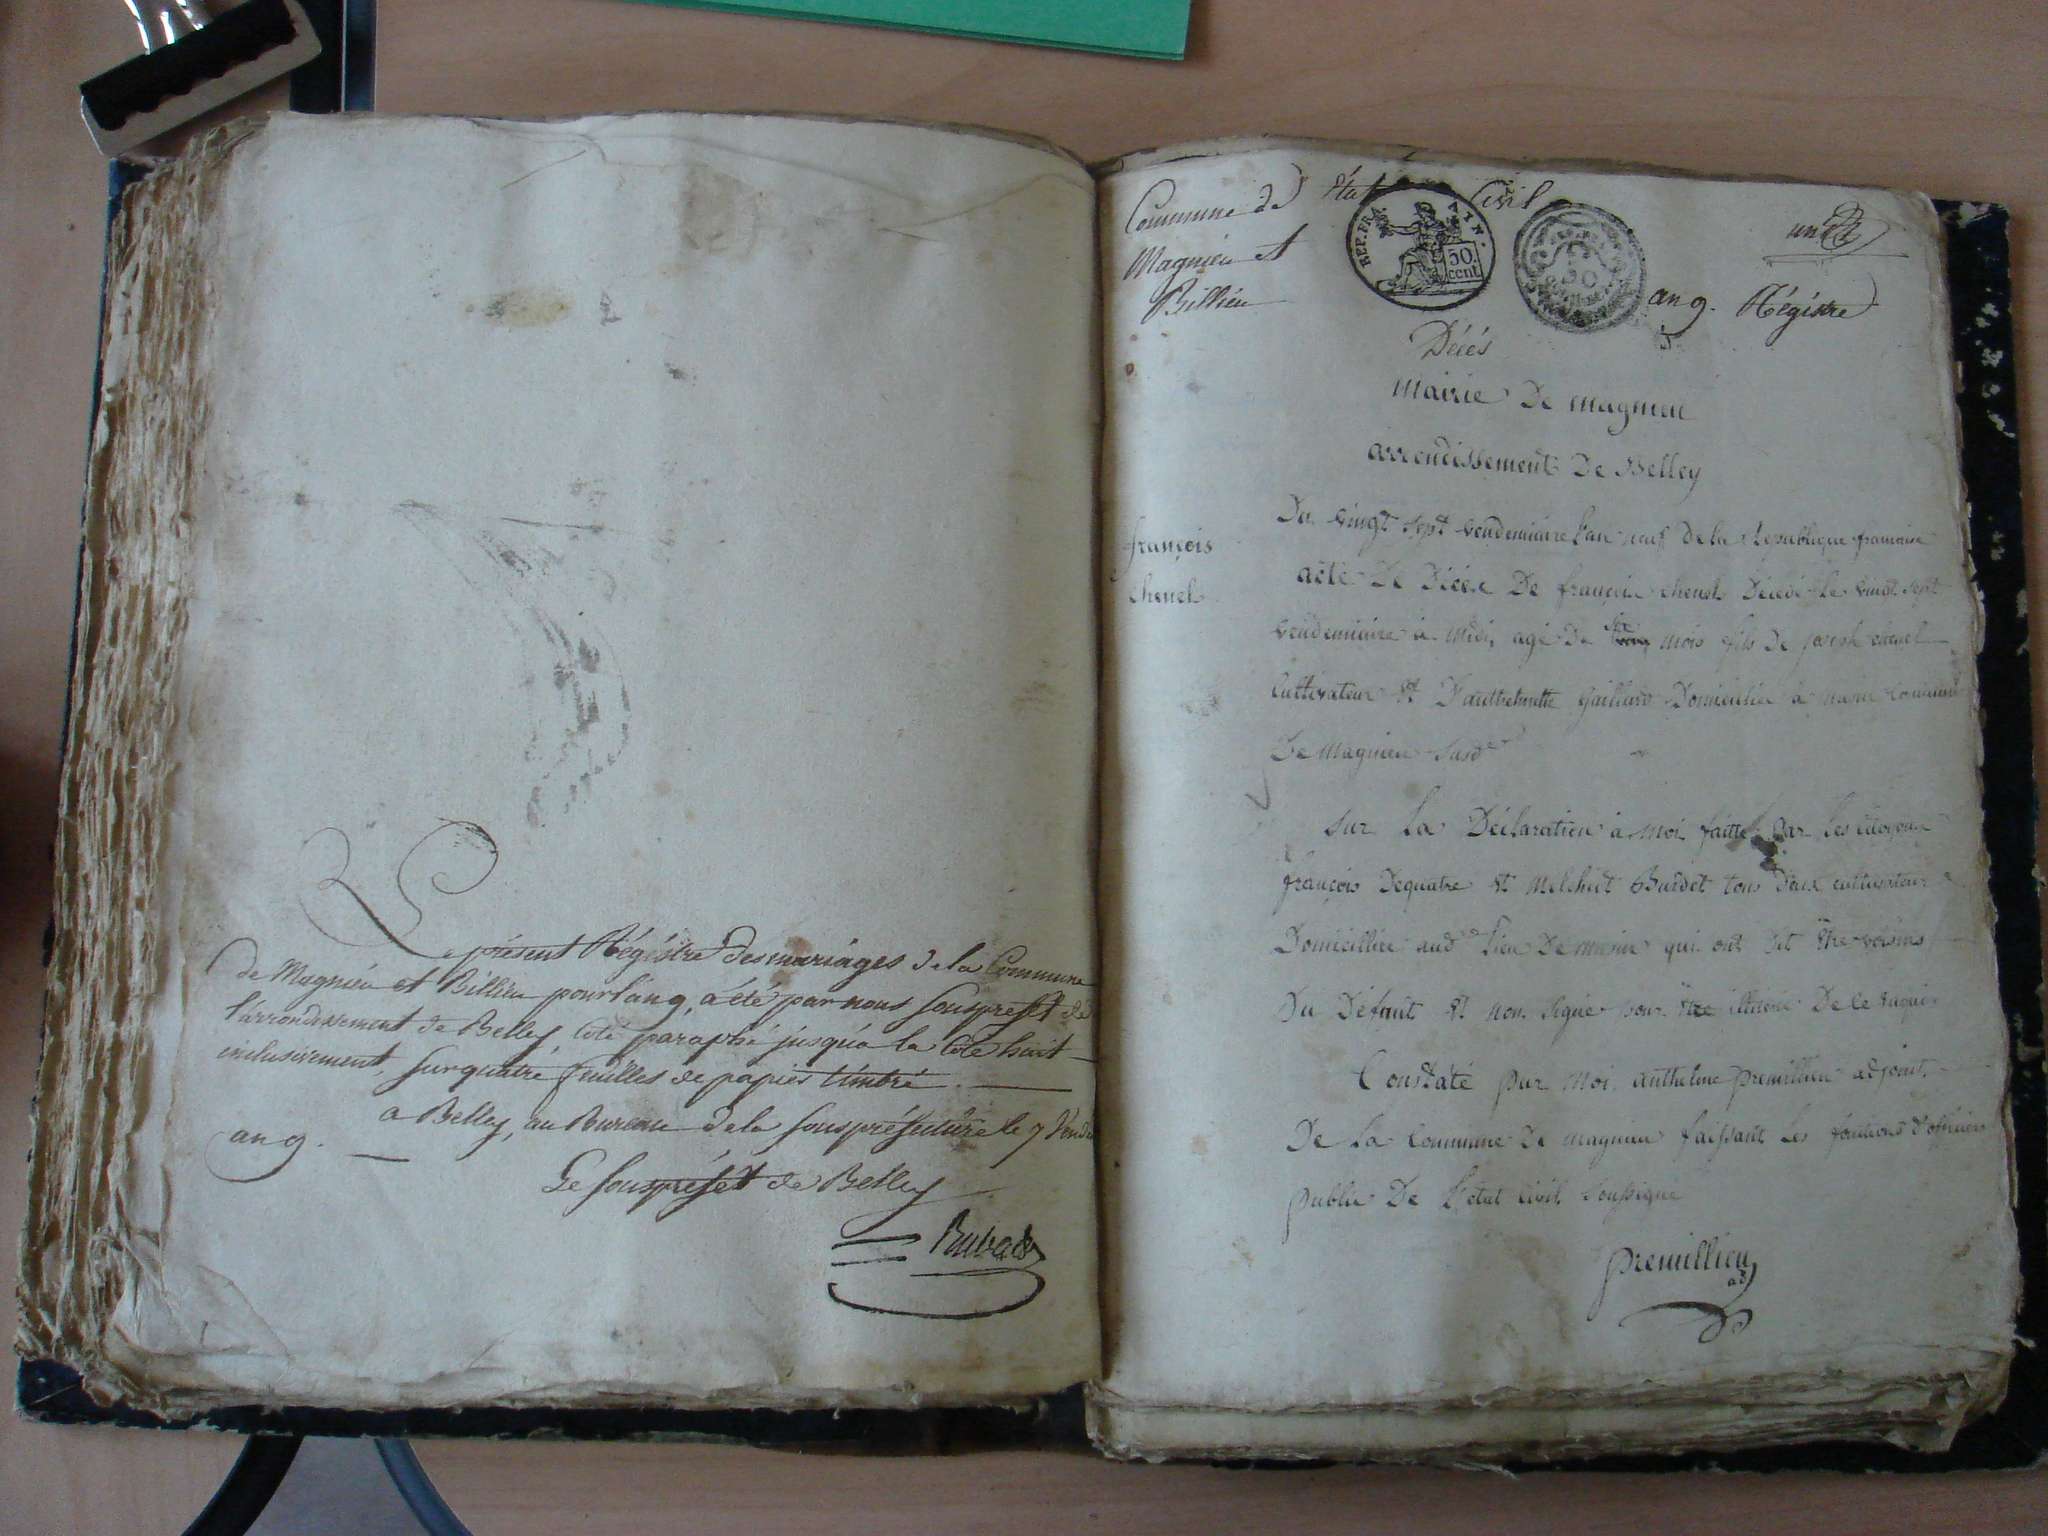 Le présent Régistre des mariages de la Commune
de Magnieu et Billieu pour l'an 9, a été par nous Souspreset de
l'arrondissement de Belley, Coté paraphé jusqu'a la Cote huit
inclusivement, Sur quatre feuilles de papier timbré.
a Belley, au Bureau de la Souspréfecture le 7 Vendre
an 9.
Le Souspréfet de Belley
Commune de État Civil
Magnieu et
Billieu
REP. FRA. AIN.
50.
cent
50
une
an 9. Régistre
Décés
Mairie De magnieu
arrondissement De Belley
françois
Chenel
Du vingt sept vendemiaire l'an neuf de la Republique francaise
acte De Décée De françois chenel Décédé Le vingt sept
vendemiaire à Midi, agé De six mois fils De joseph chenel
Cultivateur et D'anthelmette Gaillard Domiciliée à
De Magnieu
Sur La Déclaration à moi faitte par Les citoyens
françois Dequatre et Melchiot Burdet tous Deux cultivateur
Domiciliée aud Lieu De qui ont dit être voisins
Du Défunt et non Signé pour être De Ce Requis
Constaté par Moi anthelme premillieu adjoint
De La Commune De magnieu faissant Les fontions d'officiers
public De L'état Civil Soussigné
premillieu
ad